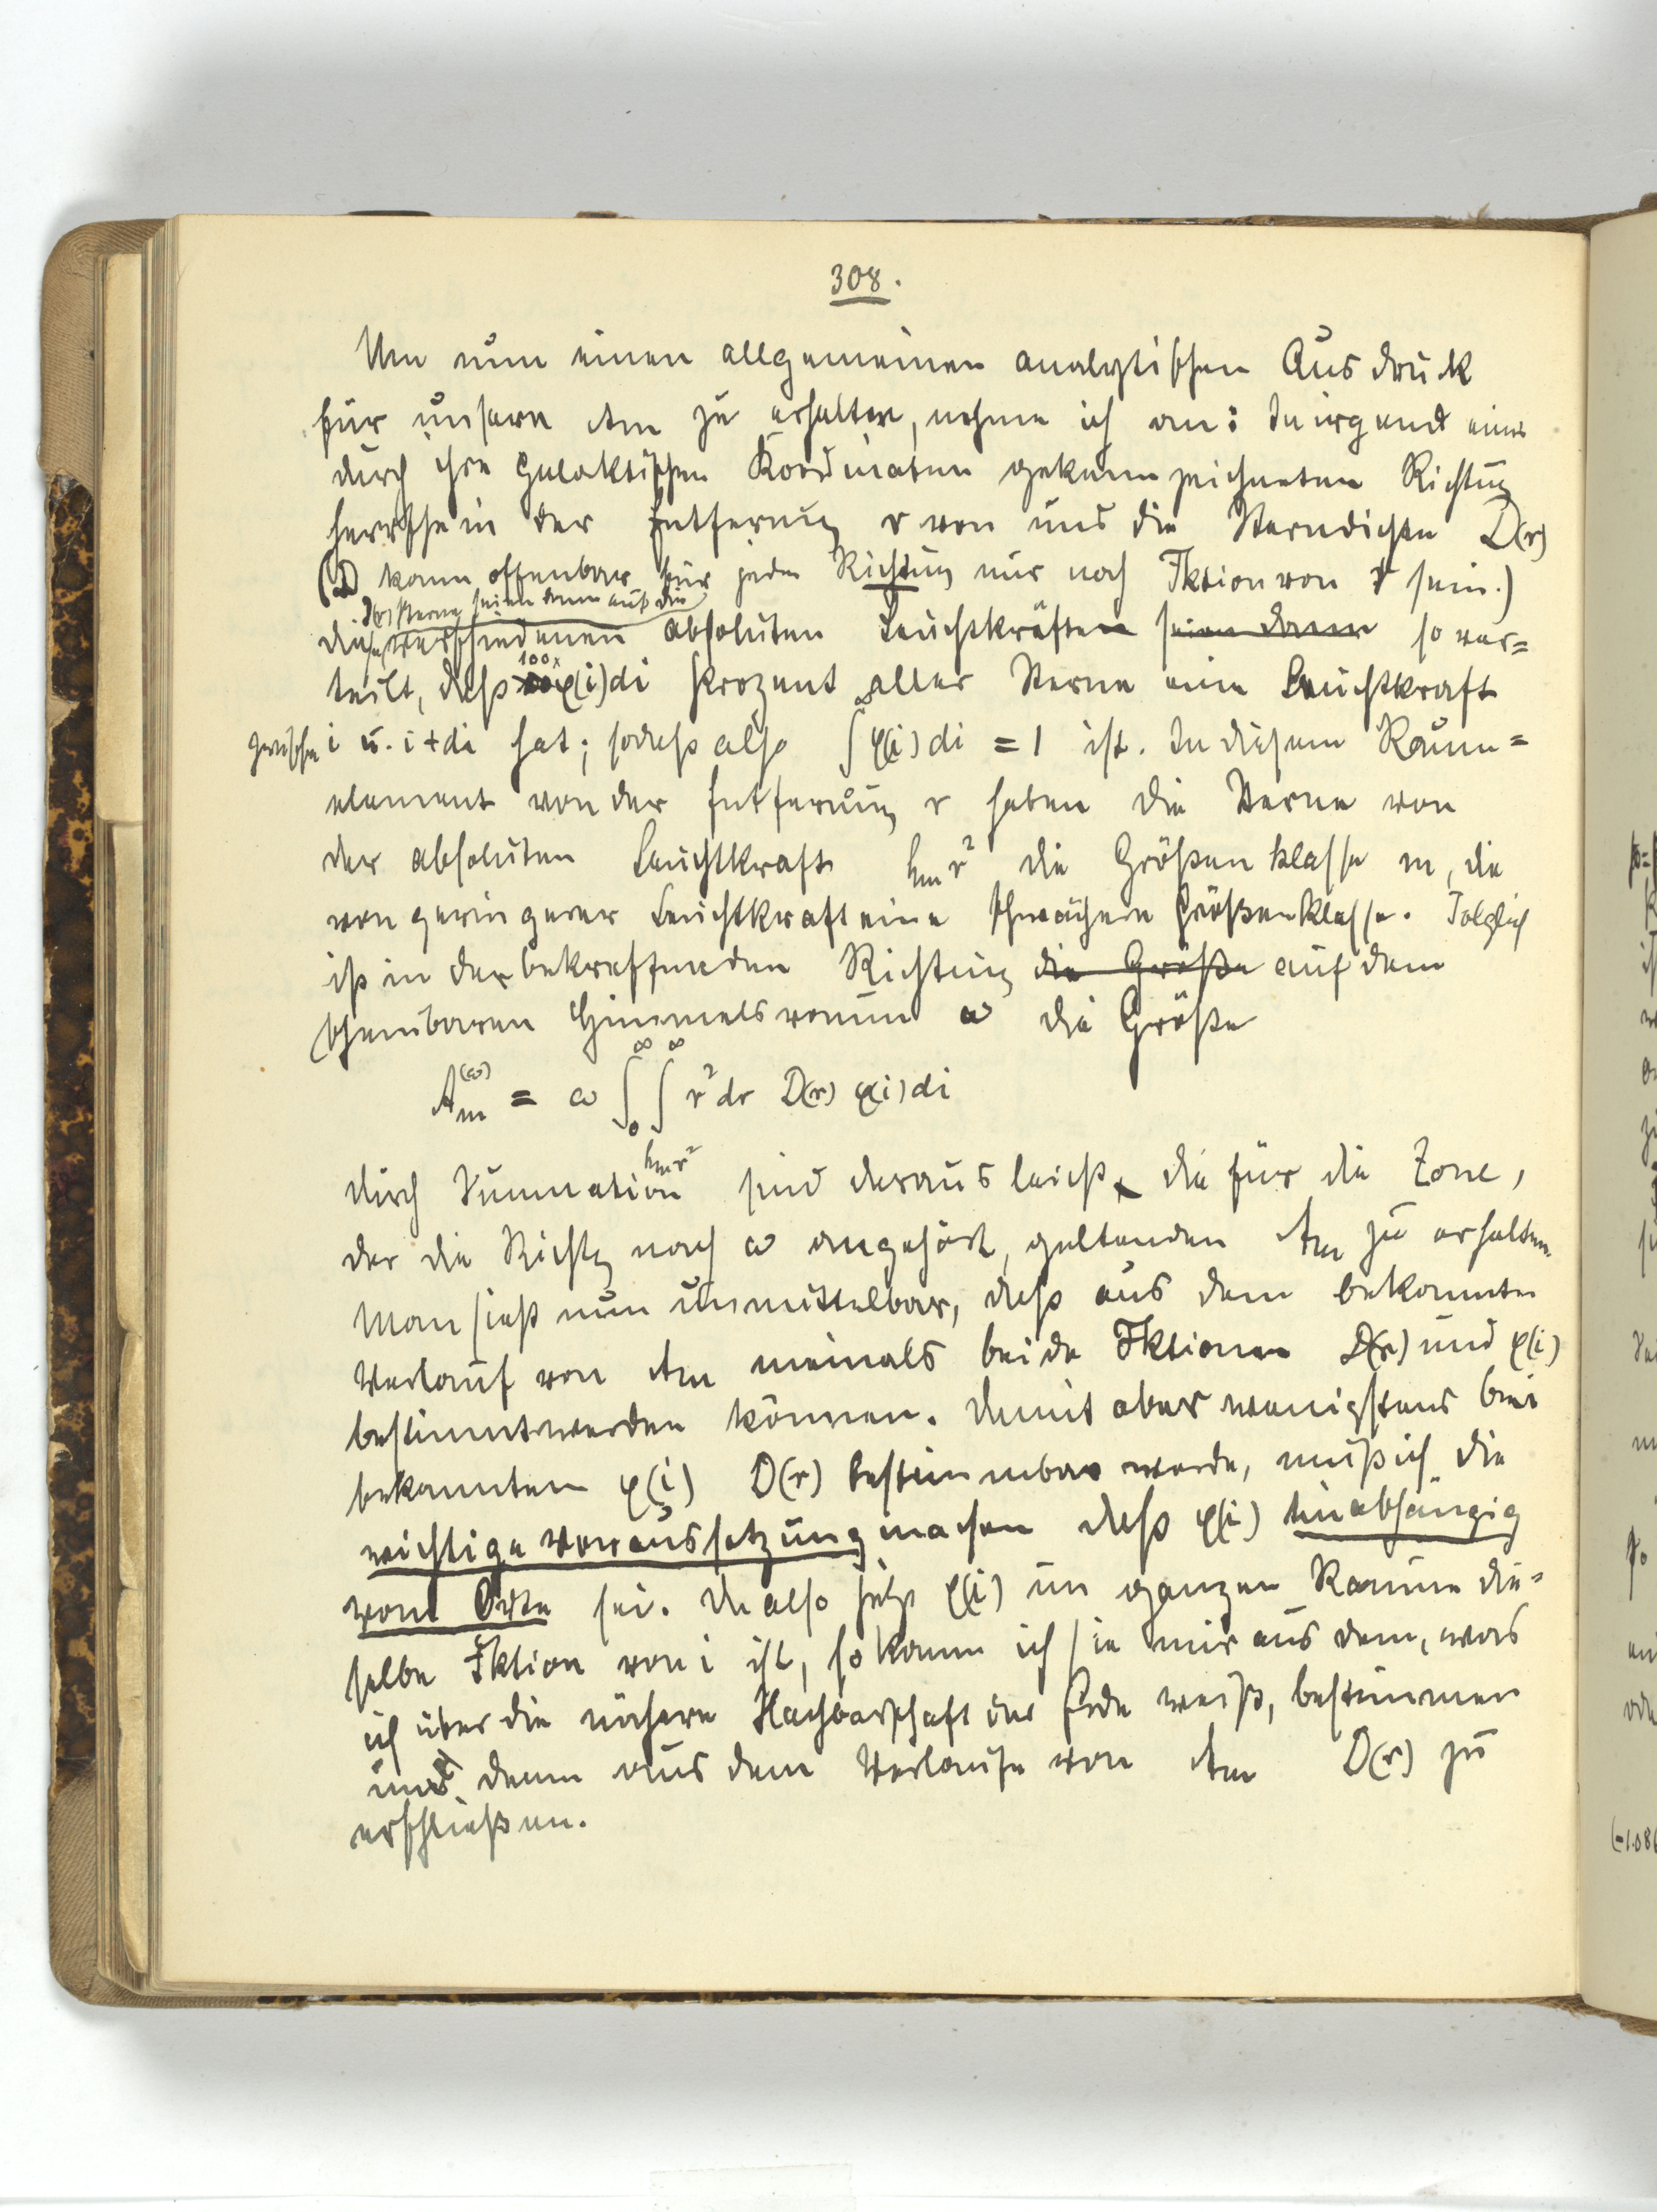 308.
Um nun einen allgemeinen analytischen Ausdruck
für unsere Am zu erhalten, nehme ich an: In irgend einer
durch ihre galaktischen Koordinaten gekennzeichneten Richtung
herrsche in der Entfernung r von uns die Sterndichte D(r)
(D kann offenbar für jede Richtung nur noch Fktion von r sein.)
D(r) Sterne seien dann auf die
verschiedenen absoluten Leuchtkräfte seien dann so ver=
100x
teilt, dass φ(i)di Prozent aller Sterne eine Leuchtkraft
zwischen i u. i+di hat; sodass also ∫^∞ φ(i)di = 1 ist. In diesem Raum=
element von der Entfernung r haben die Sterne von
der absoluten Leuchtkraft hm r² die Größenklasse m, die
von geringerer Leuchtkraft eine schwächere Größenklasse. Folglich
ist in der betreffenden Richtung die Größe auf dem
scheinbaren Himmelsraum ω die Größe
A_m^(ω) = ω ∫_0^∞ ∫_{hm r²}^∞ r² dr D(r) φ(i)di
durch Summation sind daraus leicht die für die Zone,
der die Richtg nach ω angehört, geltenden Am zu erhalten.
Man sieht nun unmittelbar, dass aus dem bekannten
Verlauf von Am niemals beide Fktionen D(r) und φ(i)
bestimmt werden können. Damit aber wenigstens bei
bekanntem φ(i) D(r) bestimmbar werde, muß ich die
wichtige Voraussetzung machen dass φ(i) unabhängig
vom Orte sei. Da also jetzt φ(i) im ganzen Raume die=
selbe Fktion von i ist, so kann ich sie mir aus dem, was
ich über die nähere Nachbarschaft der Erde weiß, bestimmen
und dann aus dem Verlaufe von Am D(r) zu
erschließen.